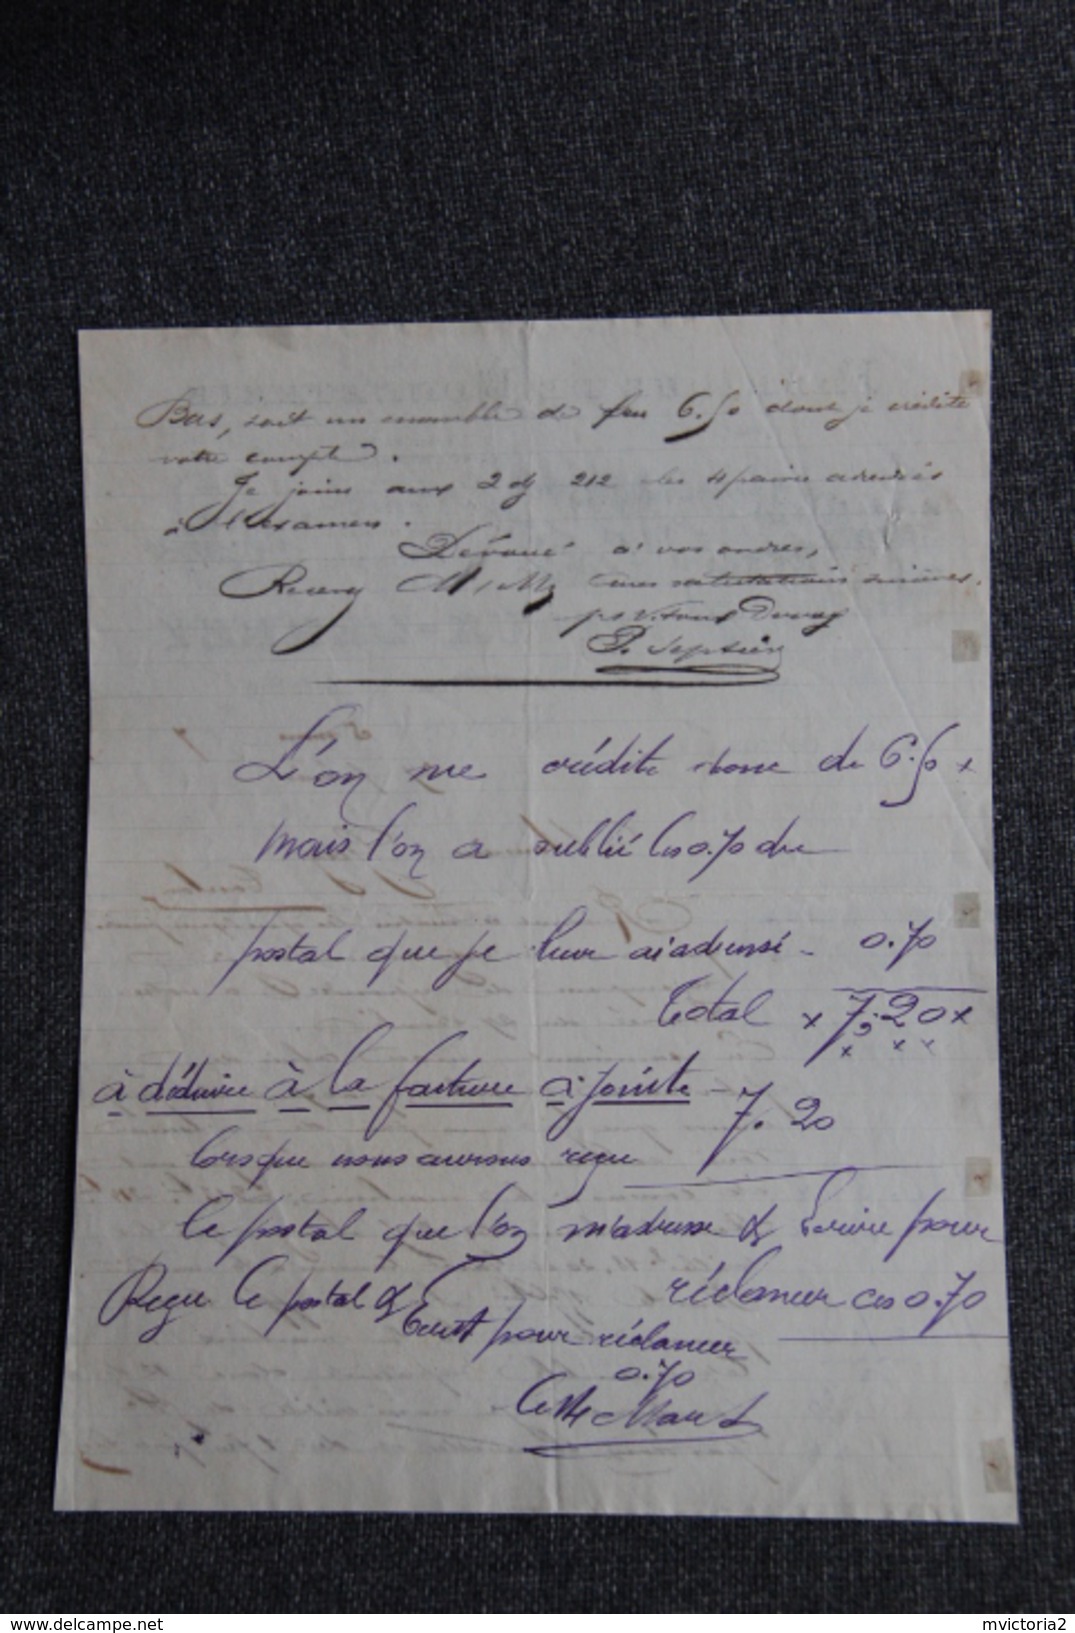 Bas, soit un ensemble de frs 6.50 dont je crédite
votre compte.
Je joins aux 2 dz 212 les 4 paires adressés
à l'examen.
Dévoué à vos ordres,
Recevez M/Mr mes salutations sincères.
P. Septier
L'on me crédite donc de 6.50 x
mais l'on a oublié les 0.70 du
postal que je leur ai adressé - 0.70
Total x 7.20 x
à déduire à la facture ci-jointe - 7.20
lorsque nous aurons reçu
le postal que l'on m'adresse & Ecrire pour
réclamer ces 0.70
Reçu le postal & Ecrit pour réclamer
0.70
delcampe.net
mvictoria2